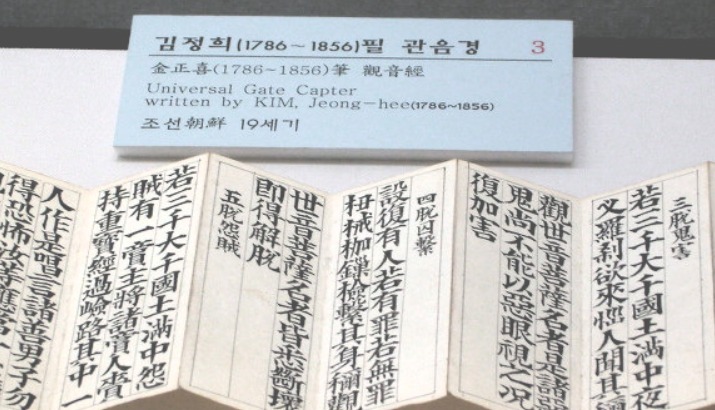 김정희(1786~1856)필 관음경 3
金正喜(1786~1856)筆 觀音經
Universal Gate Capter
written by KIM, Jeong-hee(1786~1856)
조선朝鮮 19세기
三脫鬼害
若三千大千國土滿中夜
叉羅刹欲來惱人聞其稱
觀世音菩薩名者是諸惡
鬼尚不能以惡眼視之况
復加害
四脫囚繫
設復有人若有罪若無罪
杻械枷鎖檢繫其身稱觀
世音菩薩名者皆悉斷壞
即得解脫
五脫怨賊
若三千大千國土滿中怨
賊有一商主將諸商人賫
持重寶經過嶮路其中一
人作是唱言諸善男子勿
得恐怖汝等應當一